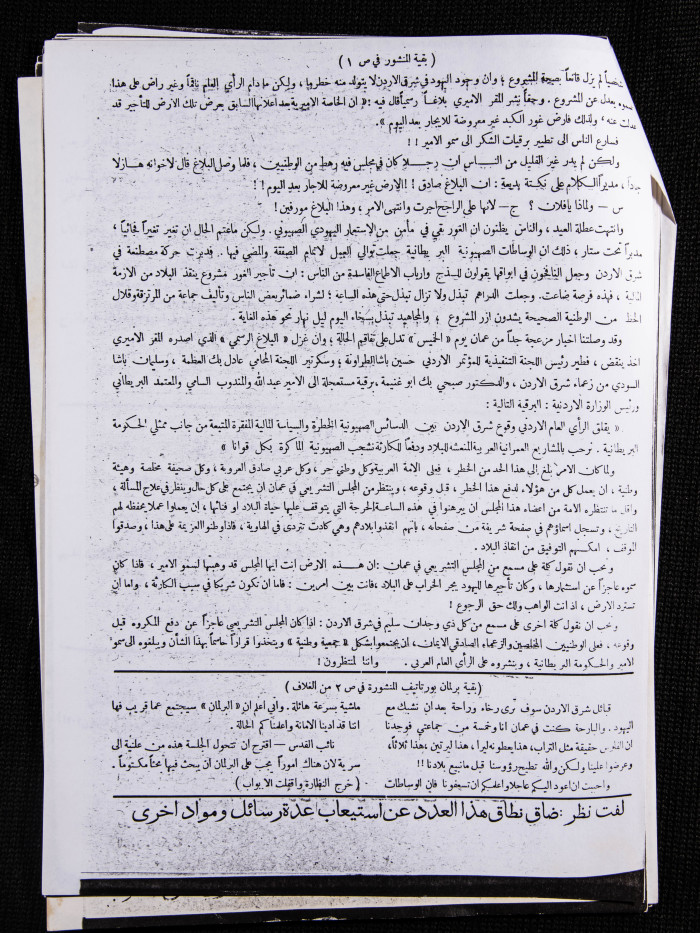 ( بقية المنشور في ص ١ )
لم يزل قانعاً بصيحة المشروع ؛ وان وجود اليهود في شرق الاردن لا يتولد منه خطر ولكن ما دام الرأي العام ناقماً وغير راض على هذا
سموه يعدل عن المشروع . وحقاً نشر المقر الاميري بلاغاً رسمياً قال فيه : « ان الخاصة الاميرية بعد اعلانها السابق بعرض تلك الارض للتأجير قد
عدلت عنه ، ولذلك فارض غور الكبد غير معروضة للايجار بعد اليوم » .
فسارع الناس الى تطيير برقيات الشكر الى سمو الامير ! !
ولكن لم يدر غير القليل من النـــاس ان رجــلا كان في مجلس فيه رهط من الوطنيين ، فلما وصل البلاغ قال لاخوانه هــازلا
جداً ، مديراً الكلام على نكتة بديعة : ان البلاغ صادق ! الارض غير معروضة للايجار بعد اليوم ! !
س – ولماذا يا فلان ؟ ج – لانها على الراجح اجرت وانتهى الامر ، وهذا البلاغ مورفين !
وانتهت عطلة العيد ، والناس يظنون ان الغور بقي في مأمن من الاستعمار اليهودي الصهيوني . ولكن ما عتم الحال ان تغير تغيراً فجائياً ،
مدبراً تحت ستار ، ذلك ان الوساطات الصهيونية البريطانية جعلت توالي السبيل لاتمام الصفقة والمضي فيها . فدبرت حركة مصطنعة في
شرق الاردن وجعل النافخون في ابواقها يقولون للسذج وارباب الاطماع الفاسدة من الناس : ان تأجير الغور مشروع ينقذ البلاد من الازمة
المالية ، فهذه فرصة ضاعت . وجعلت الدراهم تبذل ولا تزال تبذل حتى هذه الساعة ؛ لشراء ضمائر بعض الناس وتأليف جماعة من المرتزقة وقلال
الحظ من الوطنية الصحيحة يشدون ازر المشروع ؛ والمجاهيد تبذل بسخاء اليوم ليل نهار نحو هذه الغاية .
وقد وصلتنا اخبار مزعجة جداً من عمان يوم « الخميس » تدل على تفاقيم الحالة ؛ وان غزل « البلاغ الرسمي » الذي اصدره المقر الاميري
اخذ ينقض ، فطير رئيس اللجنة التنفيذية للمؤتمر الاردني حسين باشا الطراونة ؛ وسكرتير اللجنة المحامي عادل بك العظمة ، وسليمان باشا
السودي من زعماء شرق الاردن ، والدكتور صبحي بك ابو غنيمة ، برقية مستعجلة الى الامير عبد الله والمندوب السامي والمعتمد البريطاني
ورئيس الوزارة الاردنية : البرقية التالية :
« يقلق الرأي العام الاردني وقوع شرق الاردن بين الدسائس الصهيونية الخطرة والسياسة المالية المفقرة المتبعة من جانب ممثلي الحكومة
البريطانية . نرحب بالمشاريع العمرانية العربية المنعشة للبلاد ودفعاً للكارثة نشجب الصهيونية الماكرة بكل قوانا »
ولما كان الامر بلغ الى هذا الحد من الخطر ، فعلى الامة العربية وكل وطني حر ، وكل عربي صادق العروبة ، وكل صحيفة مخلصة وهيئة
وطنية ، ان يعمل كل من هؤلاء لدفع هذا الخطر ، قبل وقوعه ، وينتظر من المجلس التشريعي في عمان ان يجتمع على كل حال وينظر في علاج المسألة ،
واقل ما تنتظره الامة من اعضاء هذا المجلس ان يبرهنوا في هذه الساعة الحرجة التي يتوقف عليها حياة البلاد او فنائها ، ان يعملوا عملا يحفظه لهم
التاريخ ، وتسجل اسماؤهم في صفحة شريفة من صفحاته ، بانهم انقذوا بلادهم وهي كادت تتردى في الهاوية ، فاذا وطنوا العزيمة على هذا ، وصدقوا
الموقف ، امكنهم التوفيق من انقاذ البلاد .
ونحب ان نقول كلة على مسمع من المجلس التشريعي في عمان : ان هــذه الارض انت ايها المجلس قد وهبتها لسمو الامير ، فاذا كان
سموه عاجزاً عن استثمارها ، وكان تأجيرها لليهود يجر الخراب على البلاد ، فانت بين امرين : فاما ان تكون شريكا في سبب الكارثة ، واما ان
تسترد الارض ، اذ انت الواهب ولك حق الرجوع !
ونحب ان نقول كلة اخرى على مسمع من كل ذي وجدان سليم في شرق الاردن : اذا كان المجلس التشريعي عاجزاً عن دفع المكروه قبل
وقوعه ، فعلى الوطنيين المخلصين والزعماء الصادقي الايمان ، ان يجتمعوا بشكل « جمعية وطنية » ويتخذوا قراراً حاسماً بهذا الشأن ويبلغوه الى سمو
الامير والحكومة البريطانية ، وينشروه على الرأي العام العربي . واننا لمنتظرون !
( بقية برلمان بورتانيف المنشورة في ص ٢ من الغلاف )
قبائل شرق الاردن سوف ترى رخاء وراحة بعد ان نشبك مع
اليهود . والبارحة كنت في عمان انا وخمسة من جماعتي فوجدنا
ان الفلوس حقيقة مثل التراب ، هذا يعطونه ليرا ، هذا ليرتين ، هذا ثلاثاً ،
وعرضوا علينا ولكن والله تطيح رؤوسنا قبل ما نبيع بلادنا ! !
واحببت ان اعود اليكم عاجلا واعلمكم ان تسعفونا فان الوساطات
ملشية بسرعة هائلة . واني اعلم ان « البرلمان » سيجتمع عما قريب فها
انتا قد ادينا الامانة واعلمناكم الحالة .
نائب القدس – اقترح ان تتحول الجلسة هذه من علنية الى
سرية لان هناك اموراً يجب على البرلمان ان يبحث فيها بحثاً مكتوماً .
( خرج النظارة واقفلت الابواب )
لفت نظر : ضاق نطاق هذا العدد عن استيعاب عدة رسائل ومواد اخرى